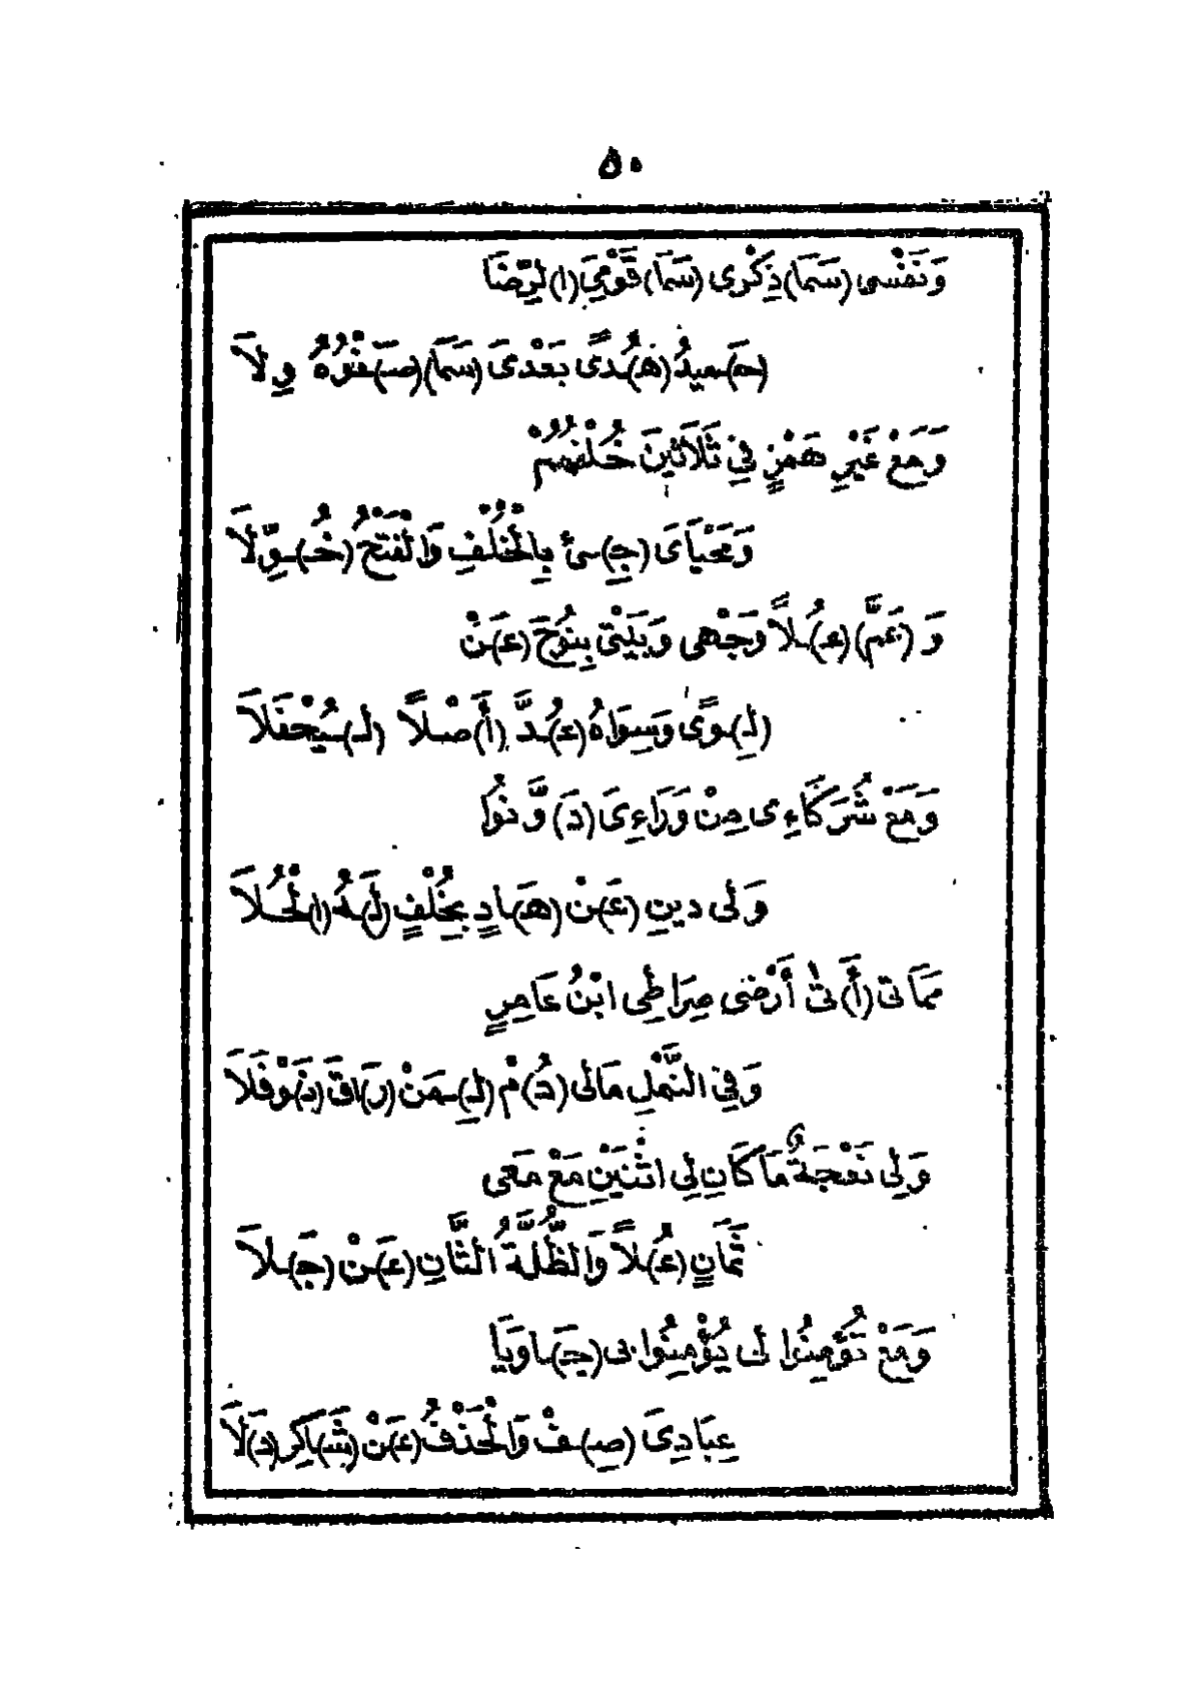 ٥٠
وَنَفْسِى (سَمَا) ذِكْرِى (سَمَا) قَوْمِيَ (ا)لرِّضَا
(حَ)ـمِيدُ (هُ)ـدًى بَعْدِىَ (سَمَا) (صَـ)ـفْوُهُ وِلَا
وَمَعْ غَيْرِ هَمْزٍ فِي ثَلَاثِينَ خُلْفُهُمْ
وَمَحْيَاىَ (جِـ)ـئْ بِالْخُلْفِ وَالْفَتْحُ (خُـ)ـوِّلَا
وَ (عَمَّ) (عُـ)ـلًا وَجْهِى وَبَيْتِى بِنُوحَ (عَـ)ـنْ
(لِـ)ـوًى وَسِوَاهُ (عُـ)ـدَّ (أَ)صْـلًا (لِـ)ـيُحْفَلَا
وَمَعْ شُرَكَاءِى مِنْ وَرَاءِىَ (دَ)وَّنُوا
وَلِى دِينِ (عَـ)ـنْ (هَـ)ـادٍ بِخُلْفٍ (لَـ)ـهُ (ا)لْحُـلَا
مَمَاتِى (أَ)تَى أَرْضِى صِرَاطِى ابْنُ عَامِرٍ
وَفِي النَّمْلِ مَالِى (دُ)مْ (لِـ)ـمَنْ (رَ)اقَ (نَـ)ـوْفَلَا
وَلِى نَعْجَةٌ مَا كَانَ لِى اثْنَيْنِ مَعْ مَعِى
ثَمَانٍ (عُـ)ـلًا وَالظُّلَّةُ الثَّانِ (عَـ)ـنْ (جَـ)ـلَا
وَمَعْ تُؤْمِنُوا لِى يُؤْمِنُوا بِى (جَـ)ـا وَيَا
عِبَادِىَ (صِـ)ـفْ وَالْحَذْفُ (عَـ)ـنْ (شَـ)ـاكِرٍ (دَ)لَا